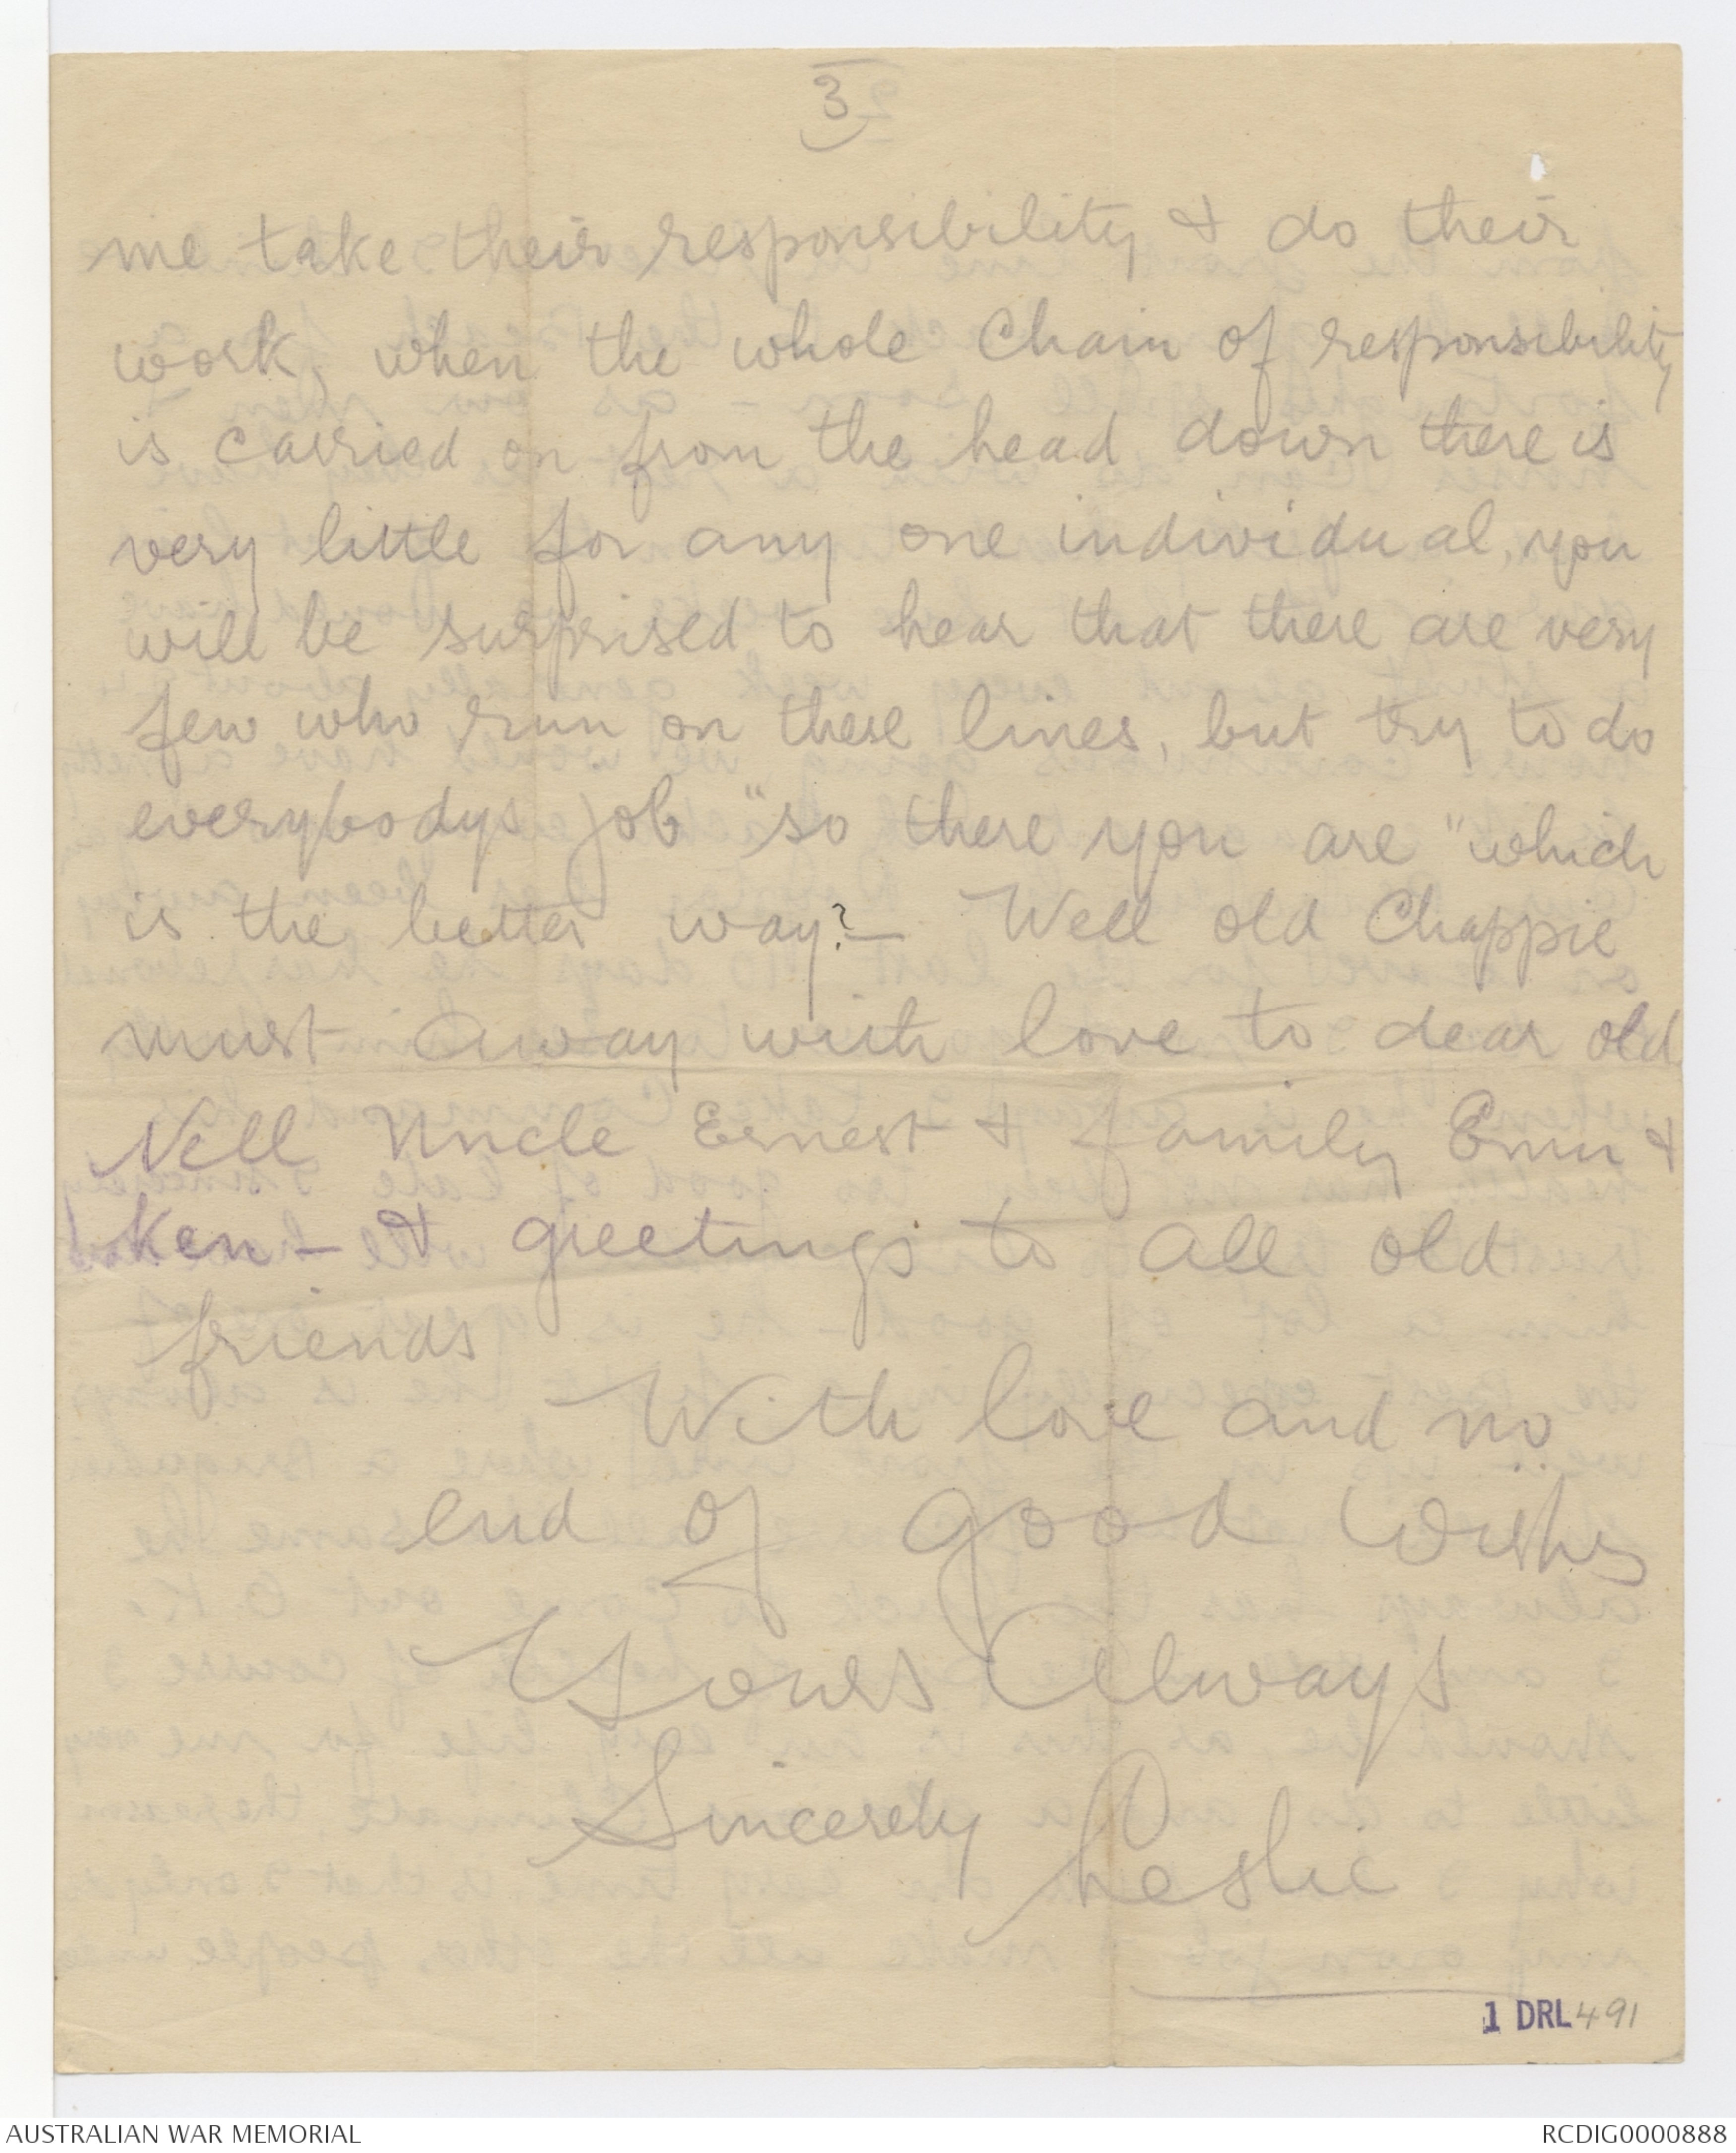 3
me take their responsibility & do their
work, when the whole Chain of responsibility
is carried on from the head down there is
very little for any one individual, you
will be surprised to hear that there are very
few who run on these lines, but try to do
everybodys job "so there you are" which
is the better way? — Well old Chappie
must away with love to dear old
Nell Uncle Ernest & family Emu &
Ken — & greetings to all old
friends
With love and no
end of good wishes
Yours Always
Sincerely
Leslie
1 DRL 491
AUSTRALIAN WAR MEMORIAL
RCDIG0000888